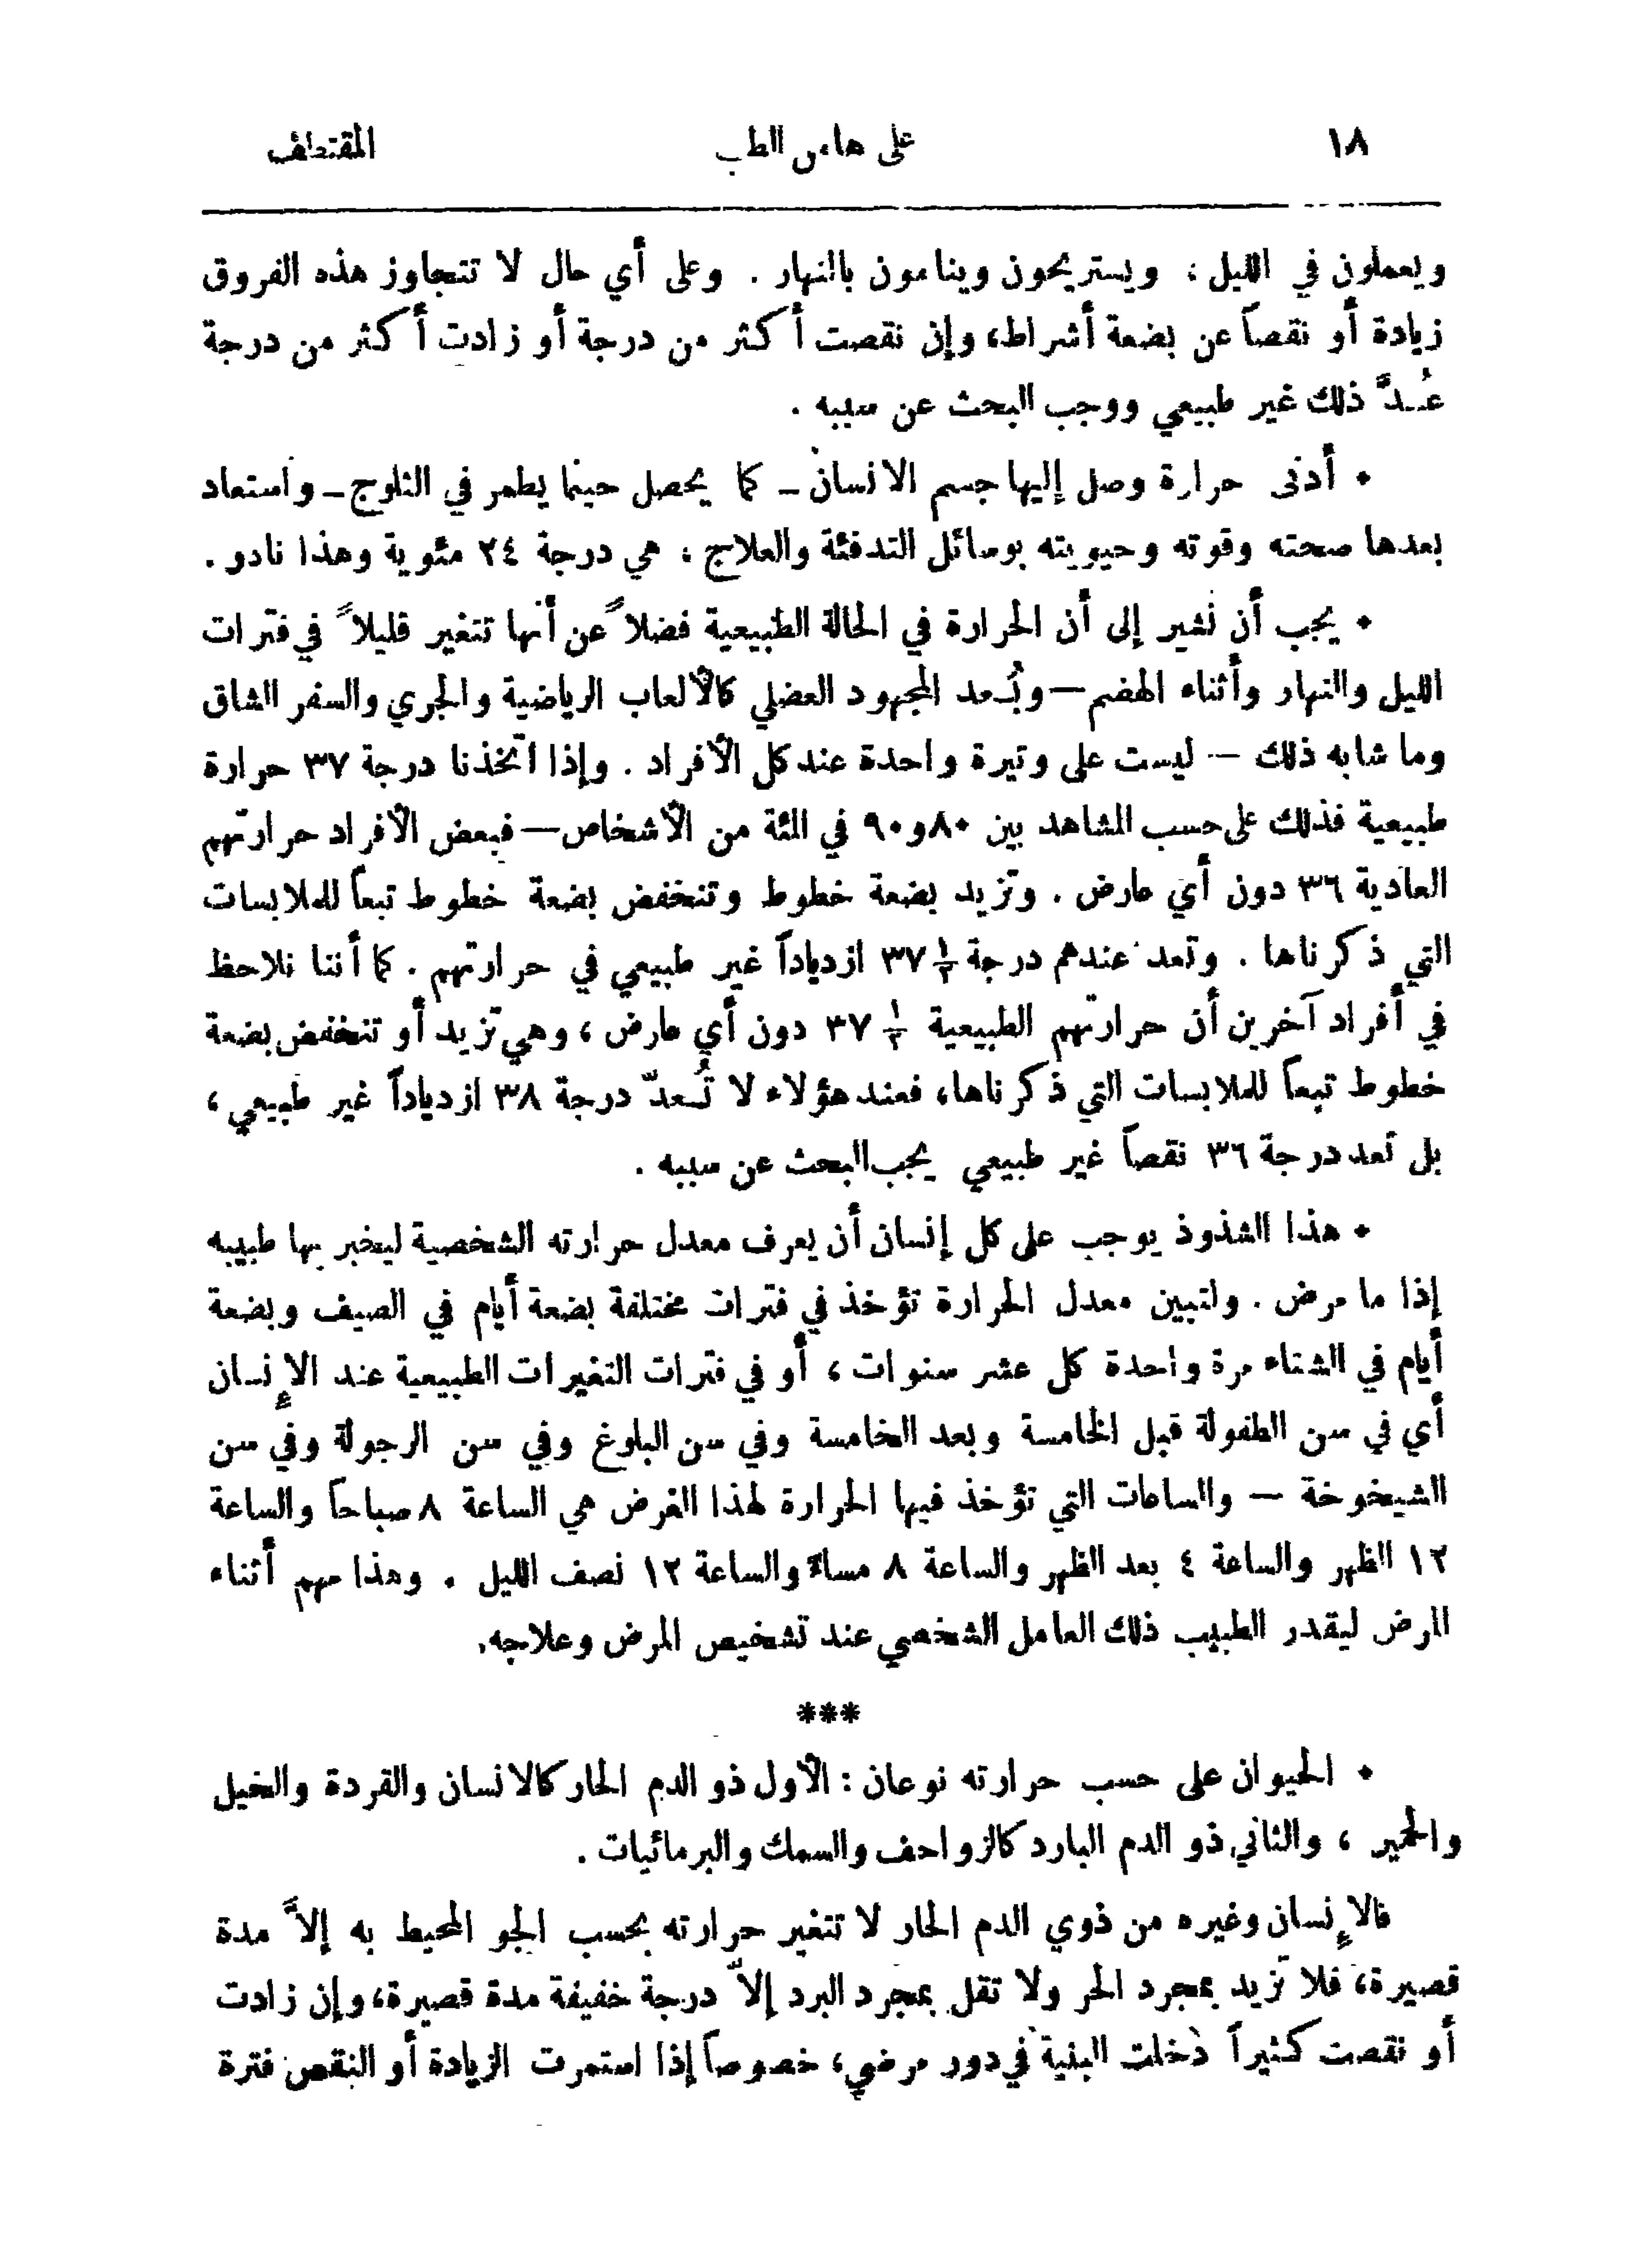 ١٨ على هامش الطب المقتطف
ويعملون في الليل ، ويستريحون وينامون بالنهار . وعلى أي حال لا تتجاوز هذه الفروق
زيادة أو نقصاً عن بضعة أشراط، وإن نقصت أكثر من درجة أو زادت أكثر من درجة
عُـدَّ ذلك غير طبيعي ووجب البحث عن سببه .
• أدنى حرارة وصل إليها جسم الانسان ــ كما يحصل حينما يطمر في الثلوج ــ واستعاد
بعدها صحته وقوته وحيويته بوسائل التدفئة والعلاج ، هي درجة ٢٤ مئوية وهذا نادر .
• يجب أن نشير إلى أن الحرارة في الحالة الطبيعية فضلاً عن أنها تتغير قليلاً في فترات
الليل والنهار وأثناء الهضم — وبُـعد المجهود العضلي كالألعاب الرياضية والجري والسفر الشاق
وما شابه ذلك — ليست على وتيرة واحدة عند كل الأفراد . وإذا اتخذنا درجة ٣٧ حرارة
طبيعية فذلك على حسب المشاهد بين ٨٠ و ٩٠ في المئة من الأشخاص — فبعض الأفراد حرارتهم
العادية ٣٦ دون أي عارض . وتزيد بضعة خطوط وتنخفض بضعة خطوط تبعاً للملابسات
التي ذكرناها . وتعد عندهم درجة ١/٢ ٣٧ ازدياداً غير طبيعي في حرارتهم . كما أننا نلاحظ
في أفراد آخرين أن حرارتهم الطبيعية ١/٢ ٣٧ دون أي عارض ، وهي تزيد أو تنخفض بضعة
خطوط تبعاً للملابسات التي ذكرناها، فعند هؤلاء لا تُـعدّ درجة ٣٨ ازدياداً غير طبيعي ،
بل تعد درجة ٣٦ نقصاً غير طبيعي يجب البحث عن سببه .
• هذا الشذوذ يوجب على كل إنسان أن يعرف معدل حرارته الشخصية ليخبر بها طبيبه
إذا ما مرض . ولتبين معدل الحرارة تؤخذ في فترات مختلفة بضعة أيام في الصيف وبضعة
أيام في الشتاء مرة واحدة كل عشر سنوات ، أو في فترات التغيرات الطبيعية عند الإنسان
أي في سن الطفولة قبل الخامسة وبعد الخامسة وفي سن البلوغ وفي سن الرجولة وفي سن
الشيخوخة — والساعات التي تؤخذ فيها الحرارة لهذا الغرض هي الساعة ٨ صباحاً والساعة
١٢ الظهر والساعة ٤ بعد الظهر والساعة ٨ مساءً والساعة ١٢ نصف الليل . وهذا مهم أثناء
المرض ليقدر الطبيب ذلك العامل الشخصي عند تشخيص المرض وعلاجه.
***
• الحيوان على حسب حرارته نوعان : الأول ذو الدم الحار كالانسان والقردة والخيل
والحمير ، والثاني ذو الدم البارد كالزواحف والسمك والبرمائيات .
فالإنسان وغيره من ذوي الدم الحار لا تتغير حرارته بحسب الجو المحيط به إلاَّ مدة
قصيرة، فلا تزيد بمجرد الحر ولا تقل بمجرد البرد إلاَّ درجة خفيفة مدة قصيرة، وإن زادت
أو نقصت كثيراً دخلت البنية في دور مرضي، خصوصاً إذا استمرت الزيادة أو النقص فترة